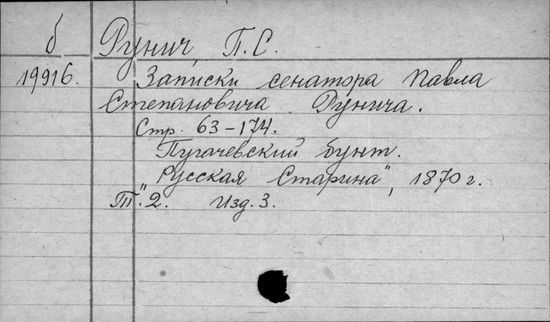 б Рунич, П.С.
19916. Записки сенатора Павла
Степановича Рунича.
Стр. 63-174.
Пугачевский бунт.
"Русская Старина", 1870 г.
Т. 2. Изд. 3.